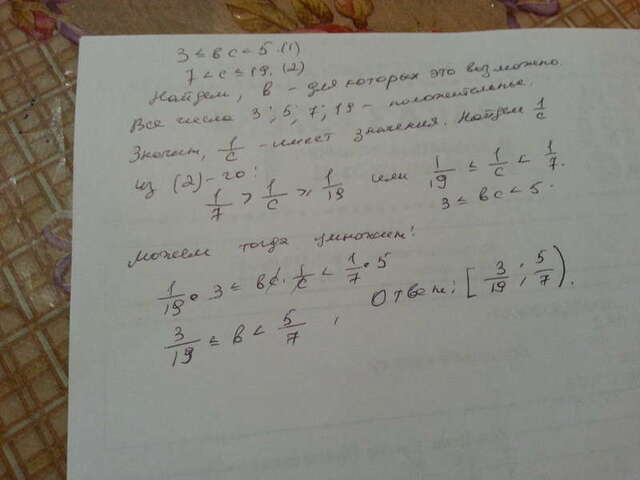 3 ≤ вс < 5. (1)
7 < с ≤ 19. (2)
Найдем, в - для которых это возможно.
Все числа 3; 5; 7; 19 - положительные.
Значит, 1/с - имеет значения. Найдем 1/с
из (2)-го:
1/7 > 1/с ≥ 1/19 или 1/19 ≤ 1/с < 1/7.
3 ≤ вс < 5.
Можем тогда умножить!
1/19 • 3 ≤ вс · 1/с < 1/7 • 5
3/19 ≤ в < 5/7 , Ответ: [3/19 ; 5/7).